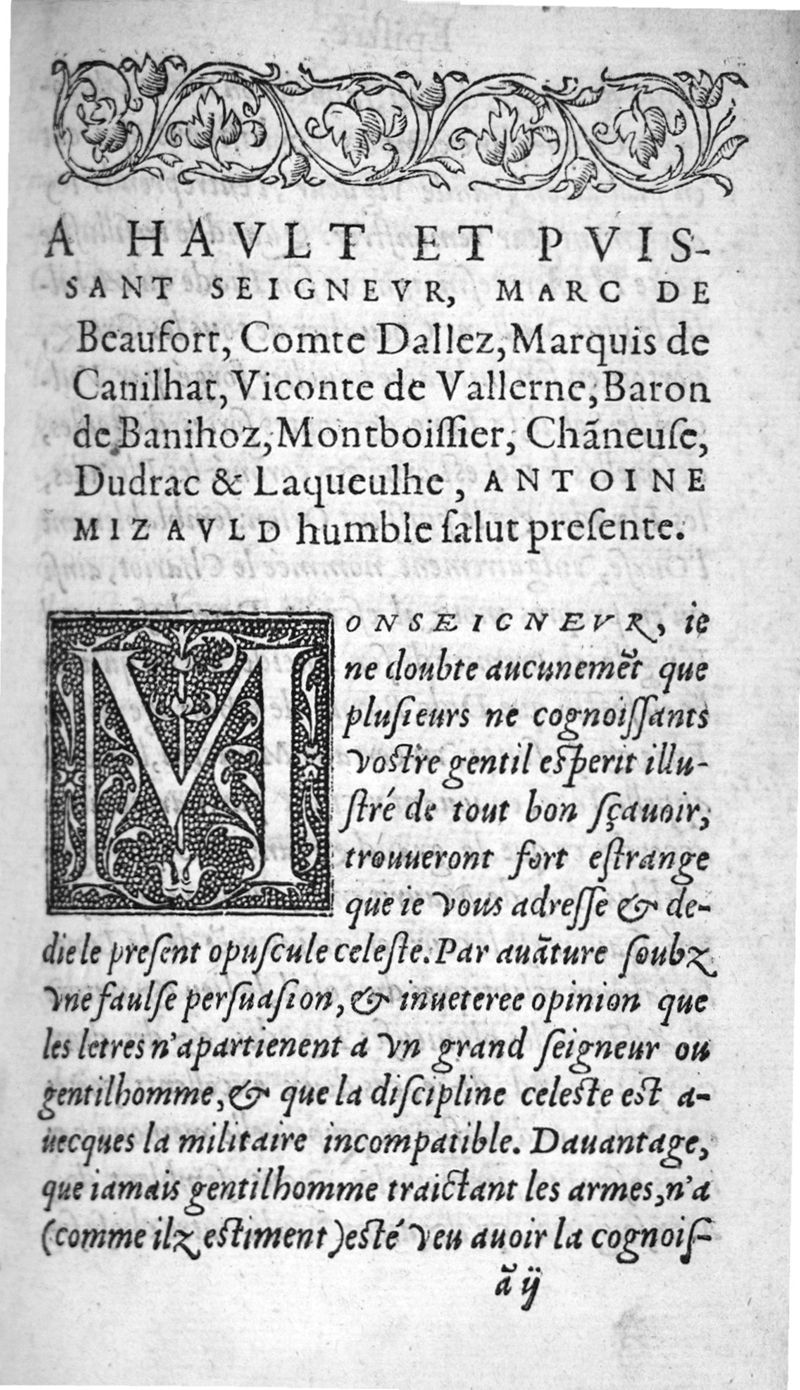 A HAVLT ET PVIS-
SANT SEIGNEVR, MARC DE
Beaufort, Comte Dallez, Marquis de
Canilhat, Viconte de Vallerne, Baron
de Banihoz, Montboiſſier, Chãneuſe,
Dudrac & Laqueulhe, ANTOINE
MIZAVLD humble ſalut preſente.
MONSEIGNEVR, ie
ne doubte aucunemẽt que
pluſieurs ne cognoiſſants
voſtre gentil eſperit illu-
ſtré de tout bon ſçauoir,
trouueront fort eſtrange
que ie vous adreſſe & de-
die le preſent opuſcule celeſte. Par auãture ſoubz
vne faulſe perſuaſion, & inueteree opinion que
les letres n'apartienent a vn grand ſeigneur ou
gentilhomme, & que la diſcipline celeſte eſt a-
uecques la militaire incompatible. Dauantage,
que iamais gentilhomme traictant les armes, n'a
(comme ilz eſtiment) eſté veu auoir la cognoiſ-
ã ij